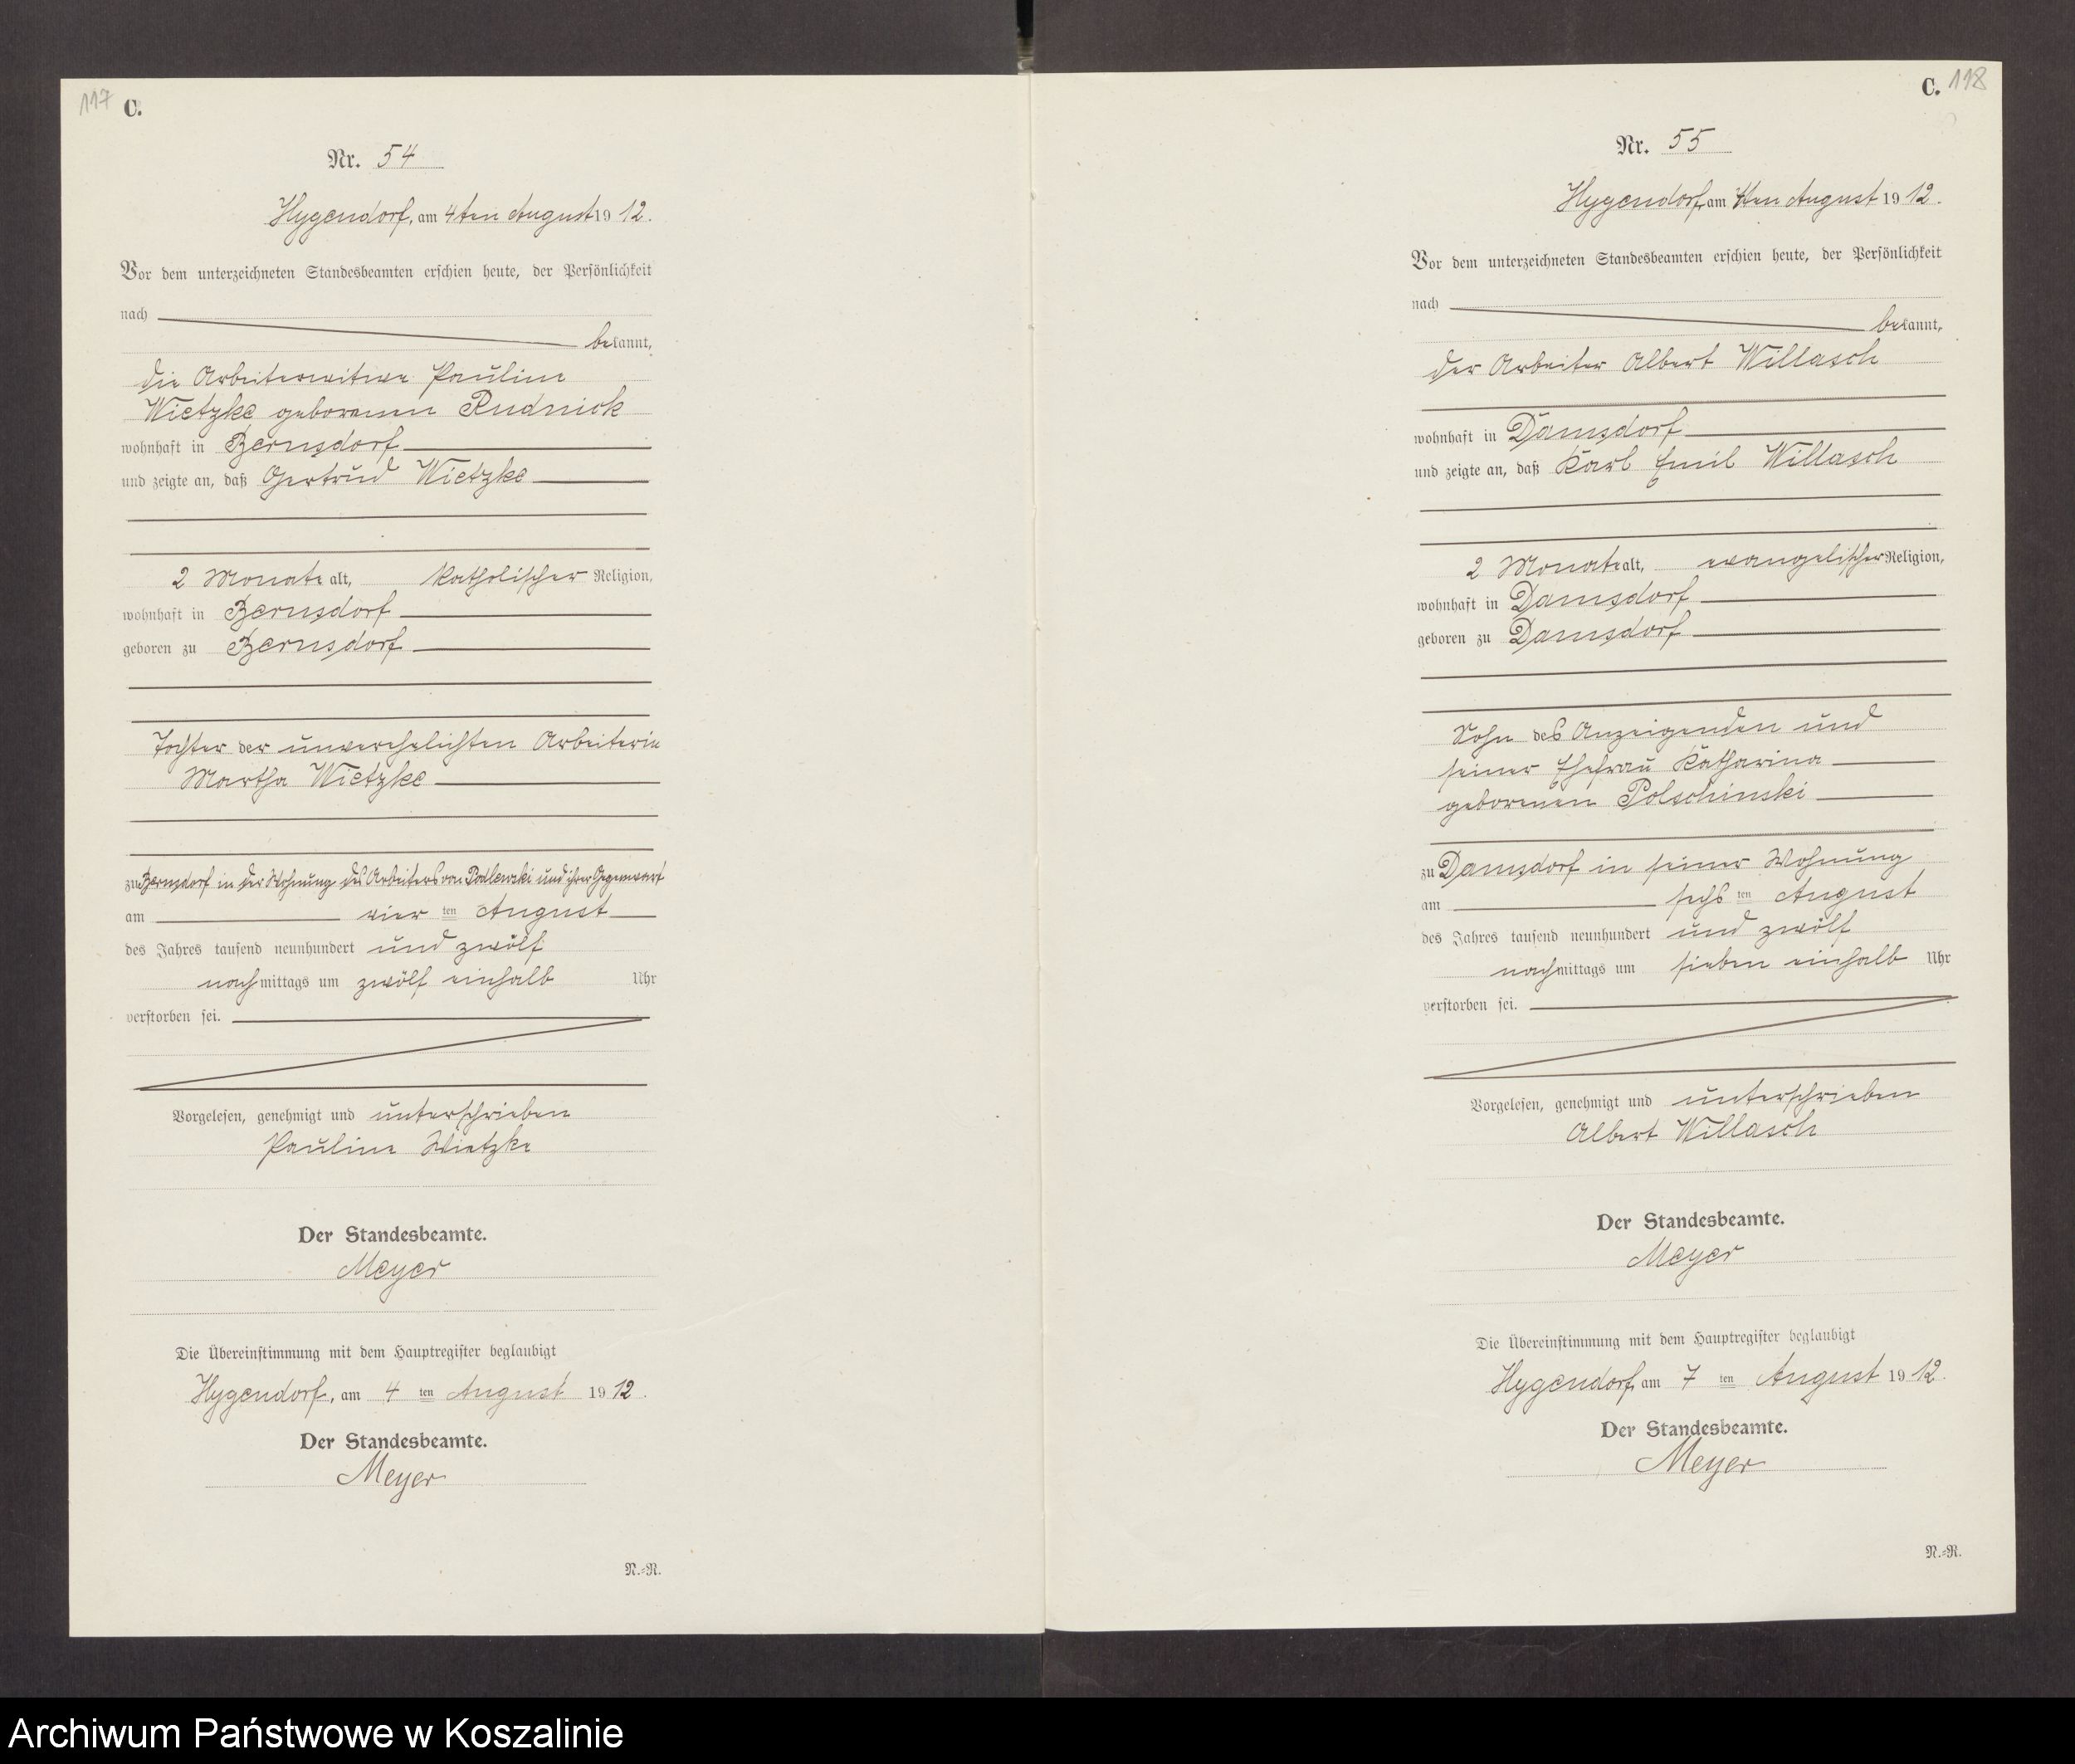 117 C.
Nr. 54
Hygendorf, am 4ten August 1912.
Vor dem unterzeichneten Standesbeamten erschien heute, der Persönlichkeit
nach
bekannt,
die Arbeiterwitwe Pauline
Wietzke geborenen Rudnick
wohnhaft in Bernsdorf
und zeigte an, daß Gertrud Wietzke
2 Monate alt, katholischer Religion,
wohnhaft in Bernsdorf
geboren zu Bernsdorf
Tochter der unverehelichten Arbeiterin
Martha Wietzke
zu Bernsdorf in der Wohnung des Arbeiters von Podlewski und ihrer Gegenwart
am vier ten August
des Jahres tausend neunhundert und zwölf
nachmittags um zwölf einhalb Uhr
verstorben sei.
Vorgelesen, genehmigt und unterschrieben
Pauline Wietzke
Der Standesbeamte.
Meyer
Die Übereinstimmung mit dem Hauptregister beglaubigt
Hygendorf, am 4 ten August 1912.
Der Standesbeamte.
Meyer
N.=R.
C. 118
Nr. 55
Hygendorf, am ten August 1912.
Vor dem unterzeichneten Standesbeamten erschien heute, der Persönlichkeit
nach
bekannt,
der Arbeiter Albert Willasch
wohnhaft in Damsdorf
und zeigte an, daß Karl Emil Willasch
2 Monate alt, evangelischer Religion,
wohnhaft in Damsdorf
geboren zu Damsdorf
Sohn des Anzeigenden und
seiner Ehefrau Katharina
geborenen Polschinski
zu Damsdorf in seiner Wohnung
am sechs ten August
des Jahres tausend neunhundert und zwölf
nachmittags um sieben einhalb Uhr
verstorben sei.
Vorgelesen, genehmigt und unterschrieben
Albert Willasch
Der Standesbeamte.
Meyer
Die Übereinstimmung mit dem Hauptregister beglaubigt
Hygendorf, am 7 ten August 1912.
Der Standesbeamte.
Meyer
N.=R.
Archiwum Państwowe w Koszalinie